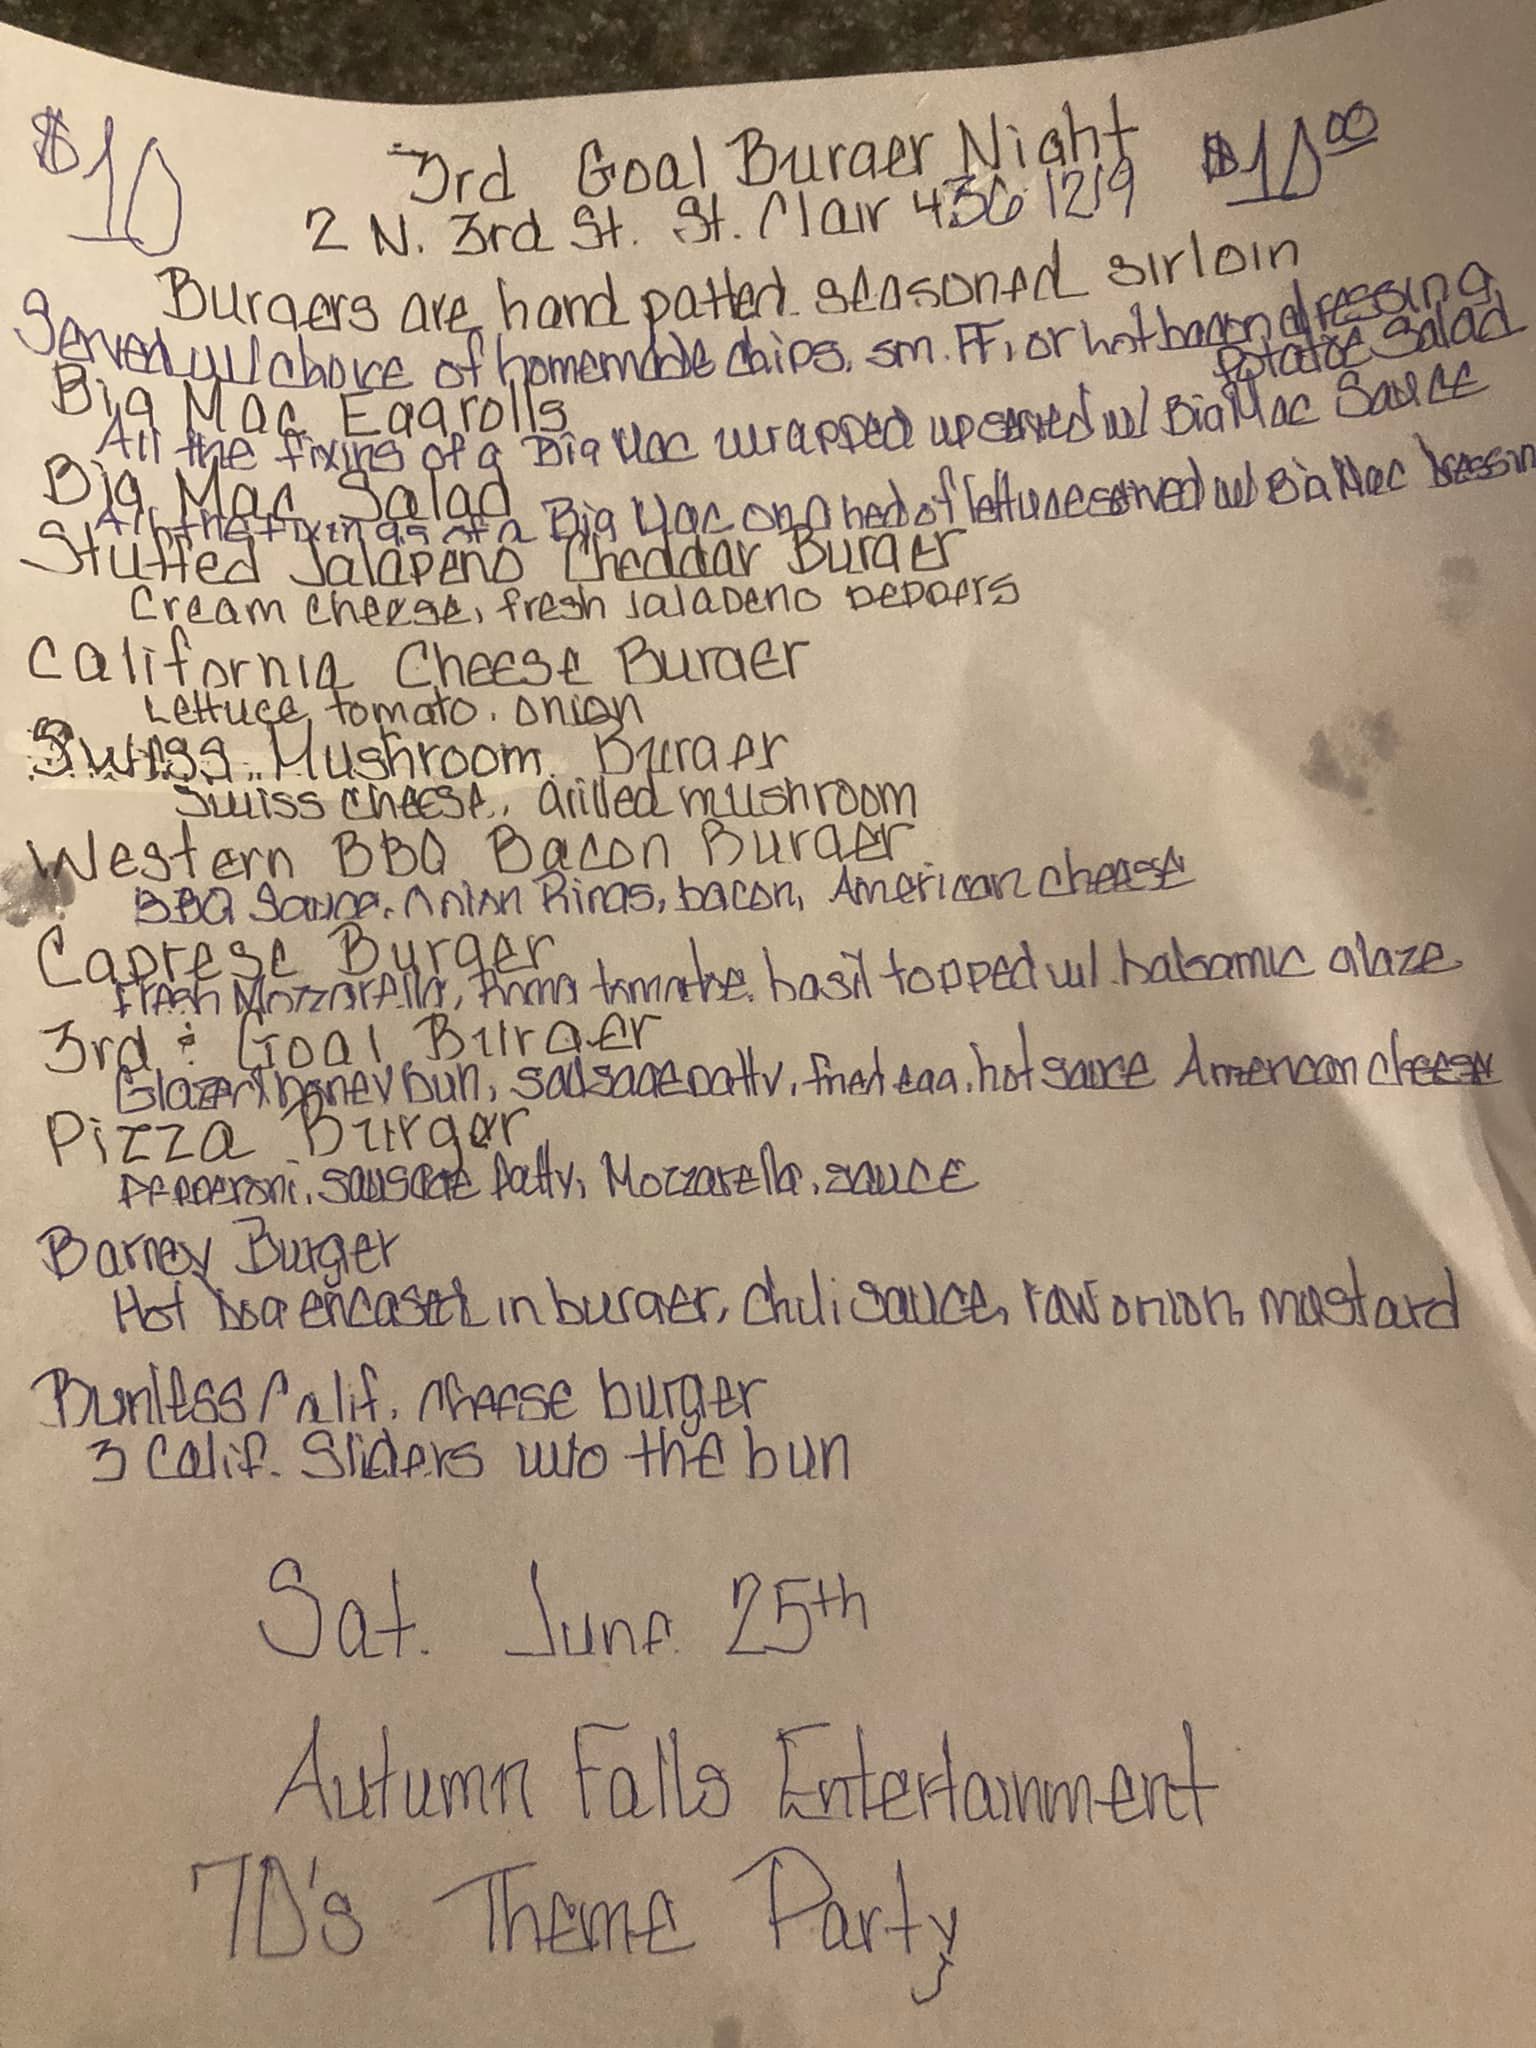 $10 3rd Goal Burger Night $10.00
2 N. 3rd St. St. Clair 436 1219
Burgers are hand patted seasoned sirloin
Served w/ choice of homemade chips, sm. FF, or hot bacon dressing
Potatoe Salad
Big Mac Eggrolls
All the fixins of a Big Mac wrapped up served w/ Big Mac Sauce
Big Mac Salad
All the fixings of a Big Mac on a bed of lettuce served w/ Big Mac Dressin
Stuffed Jalapeno Cheddar Burger
Cream cheese, fresh Jalapeno peppers
California Cheese Burger
Lettuce, tomato, onion
Swiss Mushroom Burger
Swiss cheese, Grilled mushroom
Western BBQ Bacon Burger
BBQ Sauce, Onion Rings, bacon, American cheese
Caprese Burger
Fresh Mozzarella, Roma tomatoe, basil topped w/ balsamic glaze
3rd & Goal Burger
Glazed honey bun, sausage patty, fried egg, hot sauce American cheese
Pizza Burger
Pepperoni, sausage patty, Mozzarella, sauce
Barney Burger
Hot Dog encased in burger, chili sauce, raw onion, mustard
Bunless Calif. Cheese burger
3 Calif. Sliders w/o the bun
Sat. June 25th
Autumn Falls Entertainment
70's Theme Party